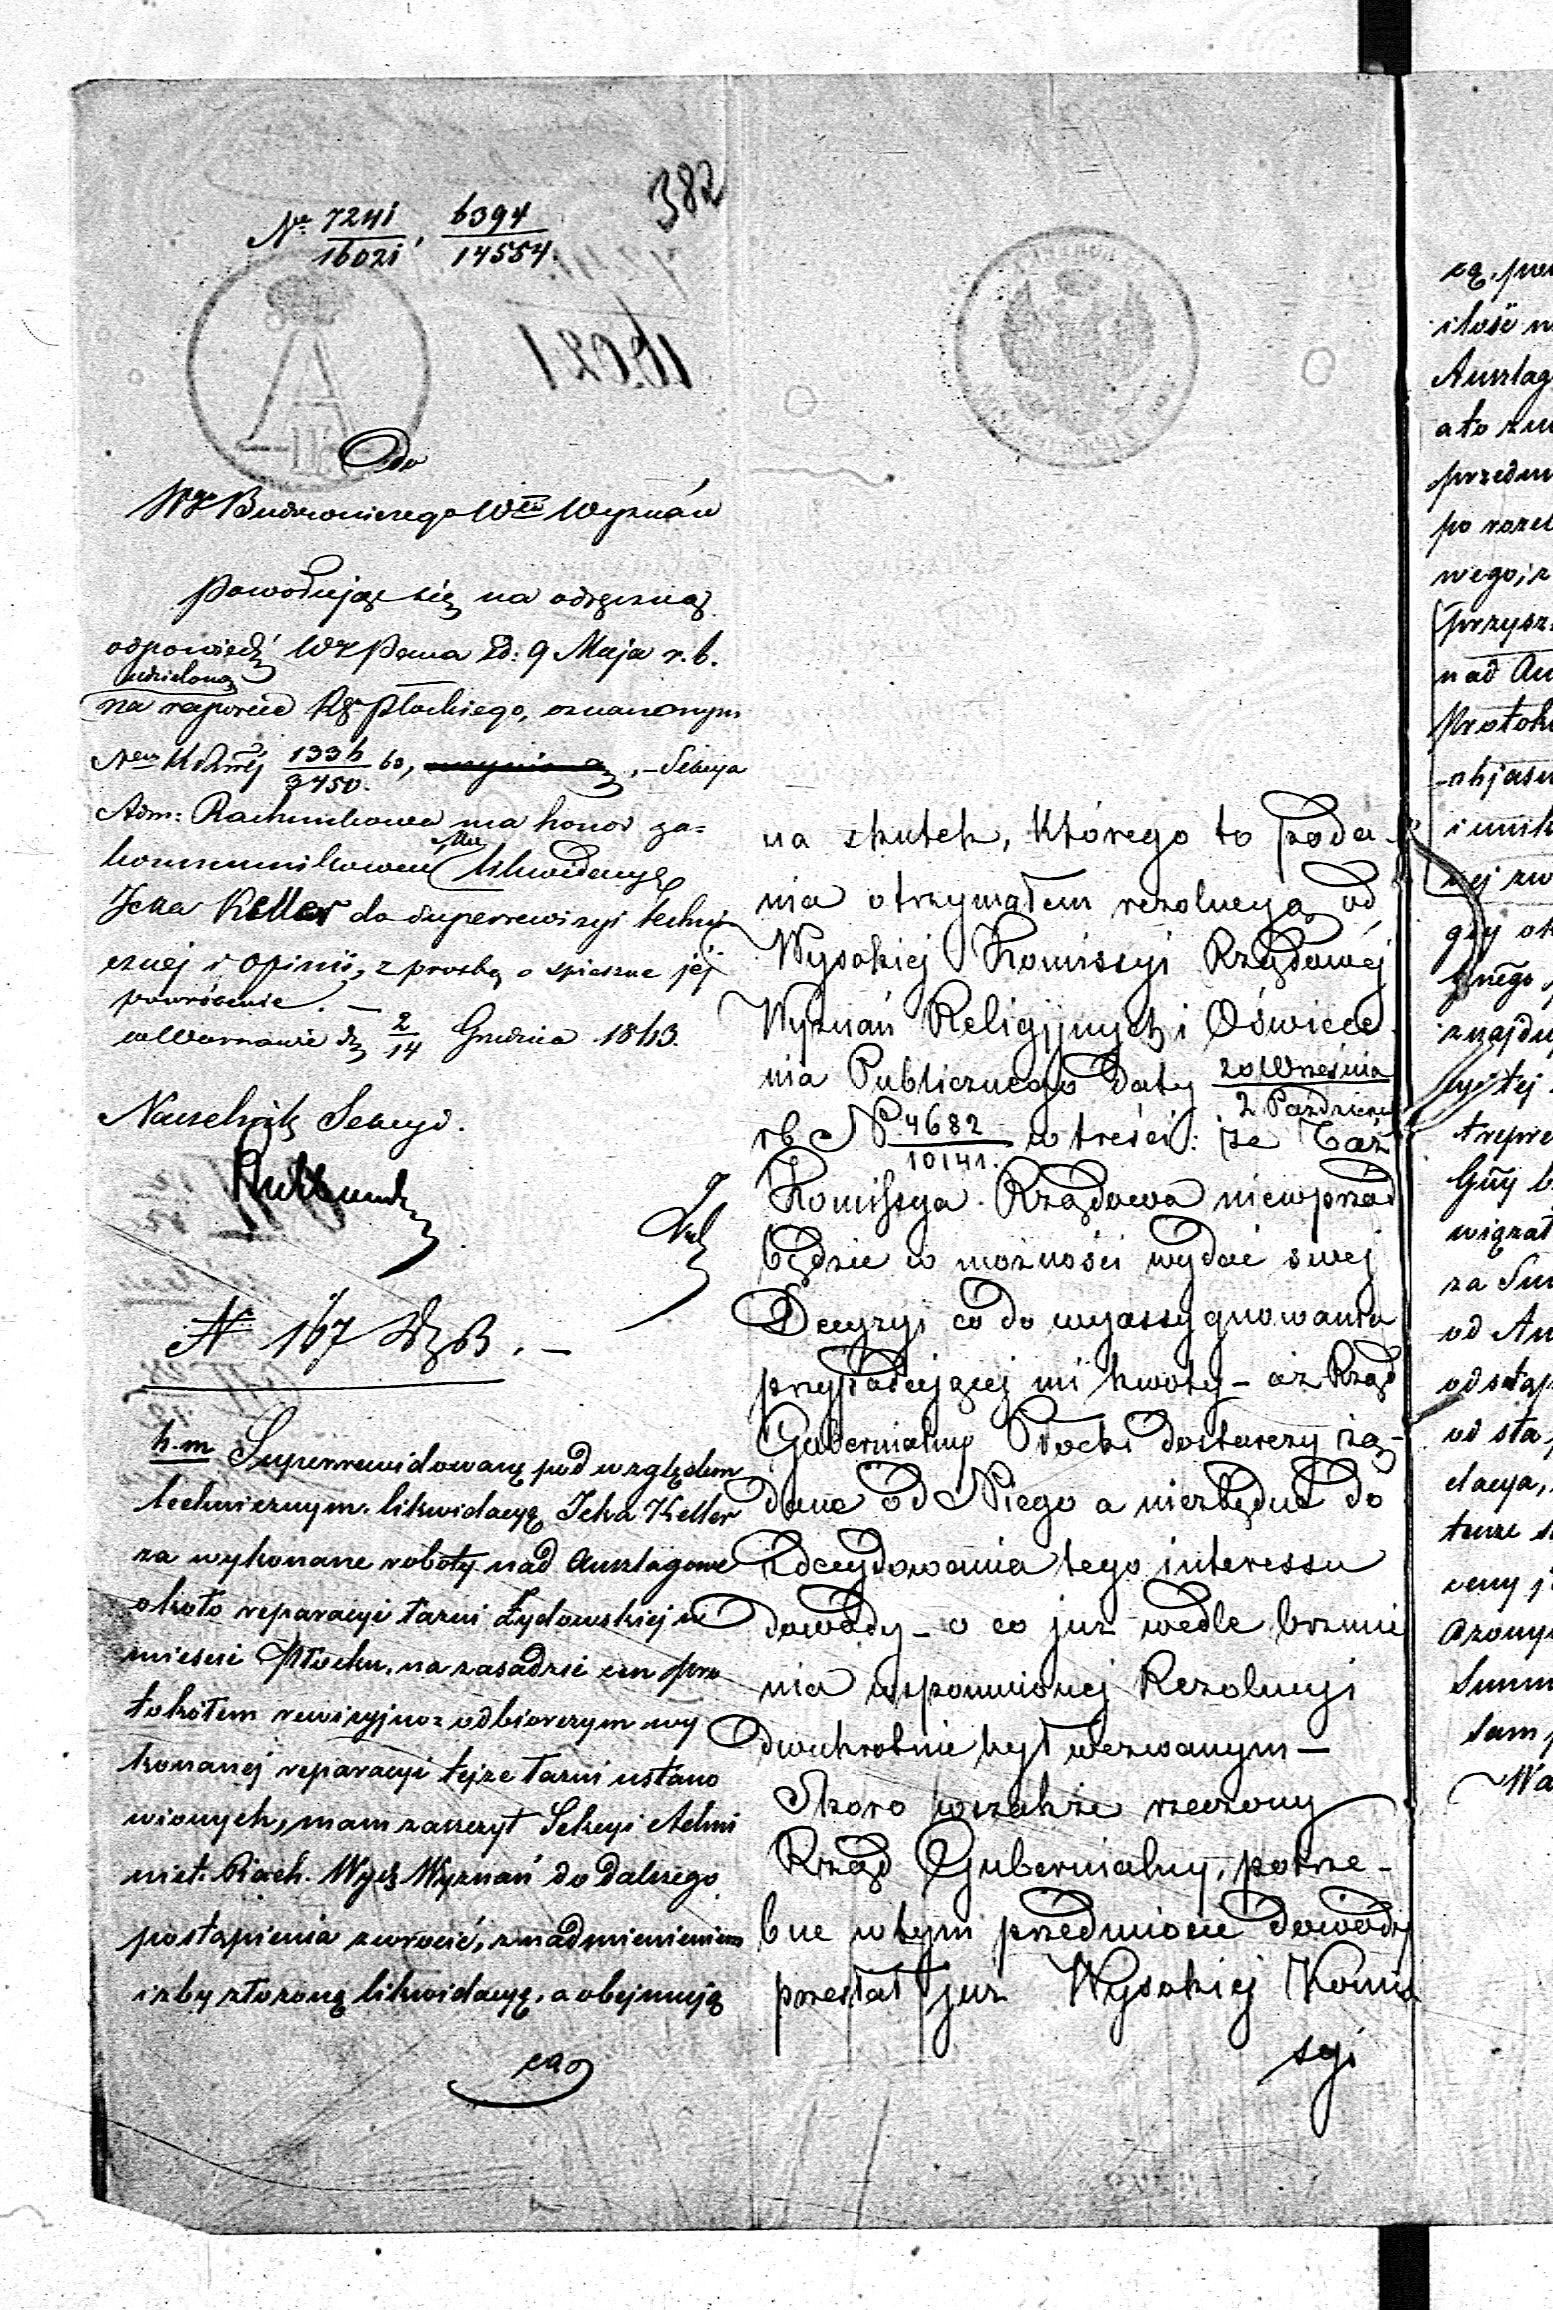 382
Nr 7241/16021, 6394/14554.
16021
Do
Wgo Budowniczego Włu Wyznań
Powołując się na odręczną
odpowiedź W Pana d: 9 Maja r. b.
udzieloną
na raporcie Rz Płockiego, oznaczonym
Nem 1336/3450 60, Sekcya
Adm: Rachunkowa ma honor za=
kommunikować Mu likwidacyę
Icka Keller do superrewizyi techni
cznej i opinii, z prosbą o spieszne jej
powrócenie. —
w Warszawie d 2/14 Grudnia 1863.
Naczelnik Sekcyi.
N 167 B. —
h.m Superrewidowaną pod względem
technicznym likwidacyę Icka Keller
za wykonane roboty nad Anszlagowe
około reparacyi łazni Żydowskiej w
mieście Płocku, na zasadzie cen pro
tokółem rewizyjno= odbiorczym wy
konanej reparacyi tejże łazni ustano
wionych, mam zaszczyt Sekcyi Admi
nist. Rach. Wyd Wyznań do dalszego
postąpienia zwrócić, z nadmienieniem
iżby złożoną likwidacyę, a obejmują
cą
na skutek, którego to poda-
nia otrzymałem rezolucyą od
Wysokiej Komissyi Rządowej
Wyznań Religijnych i Oświece
nia Publicznego daty 20 Września/2 Paździer
rb N 4682/10141. w treści: że Taż
Komissya Rządowa niewprzód
będzie w możności wydać swej
Decyzyi co do wyassygnowania
przypadającej mi kwoty — aż Rząd
Gubernialny Płocki dostarczy żą-
dane od Niego a niezbędne do
zdecydowania tego interessu
dowody — o co już wedle brzmie
nia wspomnionej Rezolucyi
dwukrotnie był wezwanym —
Skoro wszakże rzeczony
Rząd Gubernialny, potrze-
bne w tym przedmiocie dowody
przesłał już Wysokiej Komis
syi
ilość
Anszlag
a to
przedm
po
wego, z
przysz
nad An
Protok
i unik
gdy
znajdu
wiązał
za Sum
od An
odstąp
od
Summ
sam
Wa